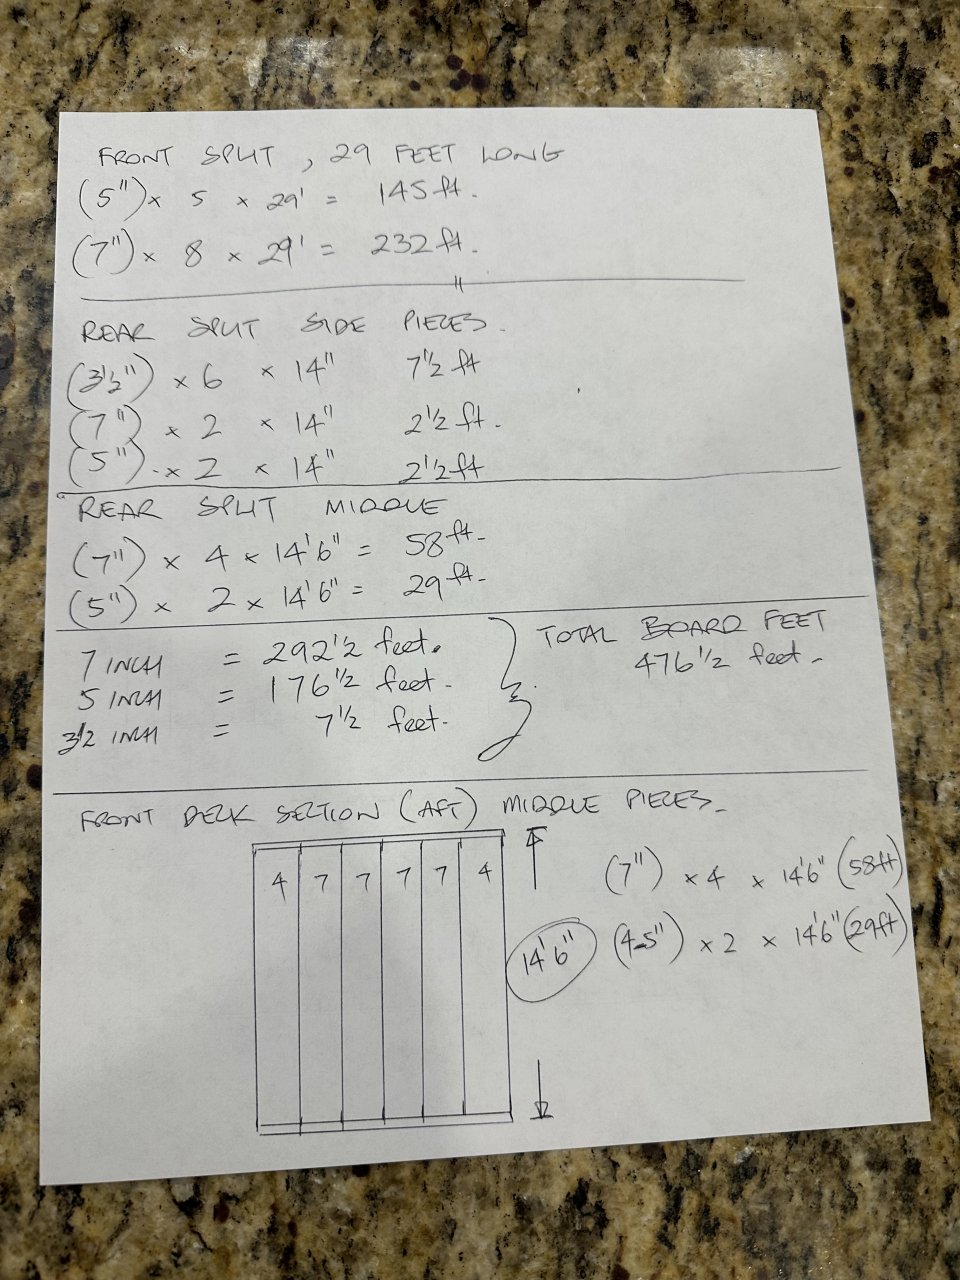 FRONT SPLIT, 29 FEET LONG
(5") x 5 x 29' = 145 ft.
(7") x 8 x 29' = 232 ft.
"
REAR SPLIT SIDE PIECES.
(3½") x 6 x 14" 7½ ft
(7") x 2 x 14" 2½ ft.
(5") x 2 x 14" 2½ ft
REAR SPLIT MIDDLE
(7") x 4 x 14'6" = 58 ft.
(5") x 2 x 14'6" = 29 ft.
7 INCH = 292½ feet.
5 INCH = 176½ feet.
3½ INCH = 7½ feet.
TOTAL BOARD FEET
476½ feet.
FRONT DECK SECTION (AFT) MIDDLE PIECES.
4 7 7 7 7 4
14'6"
(7") x 4 x 14'6" (58ft)
(4-5") x 2 x 14'6" (29ft)